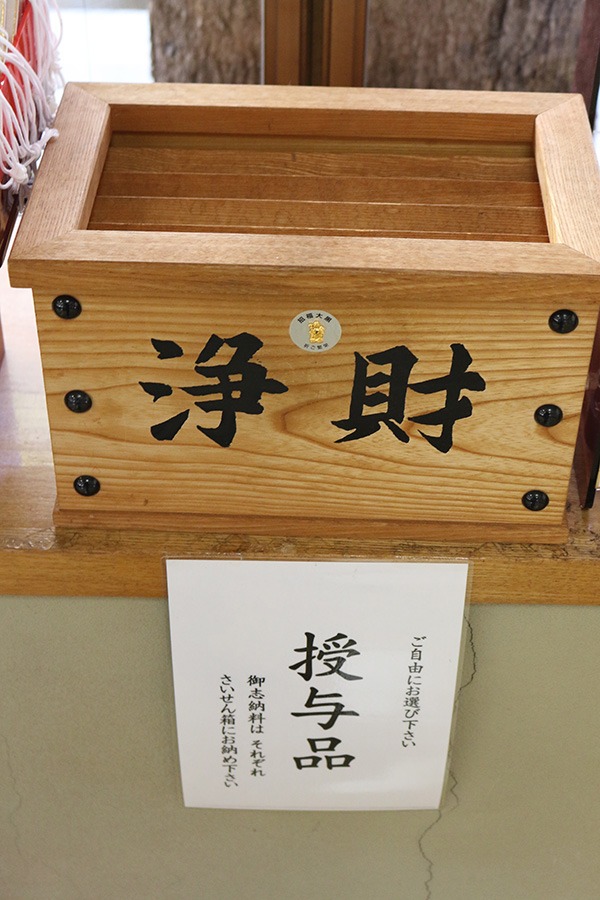 浄財
ご自由にお選び下さい
授与品
御志納料は それぞれ
さいせん箱にお納め下さい